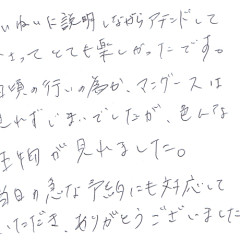 いねいに説明しながらアテンドして
さってとても楽しかったです。
頃の行いの為か、マングースは
見れずじまいでしたが、色んな
生物が見れました。
当日の急な予約にも対応して
いただき、ありがとうございました